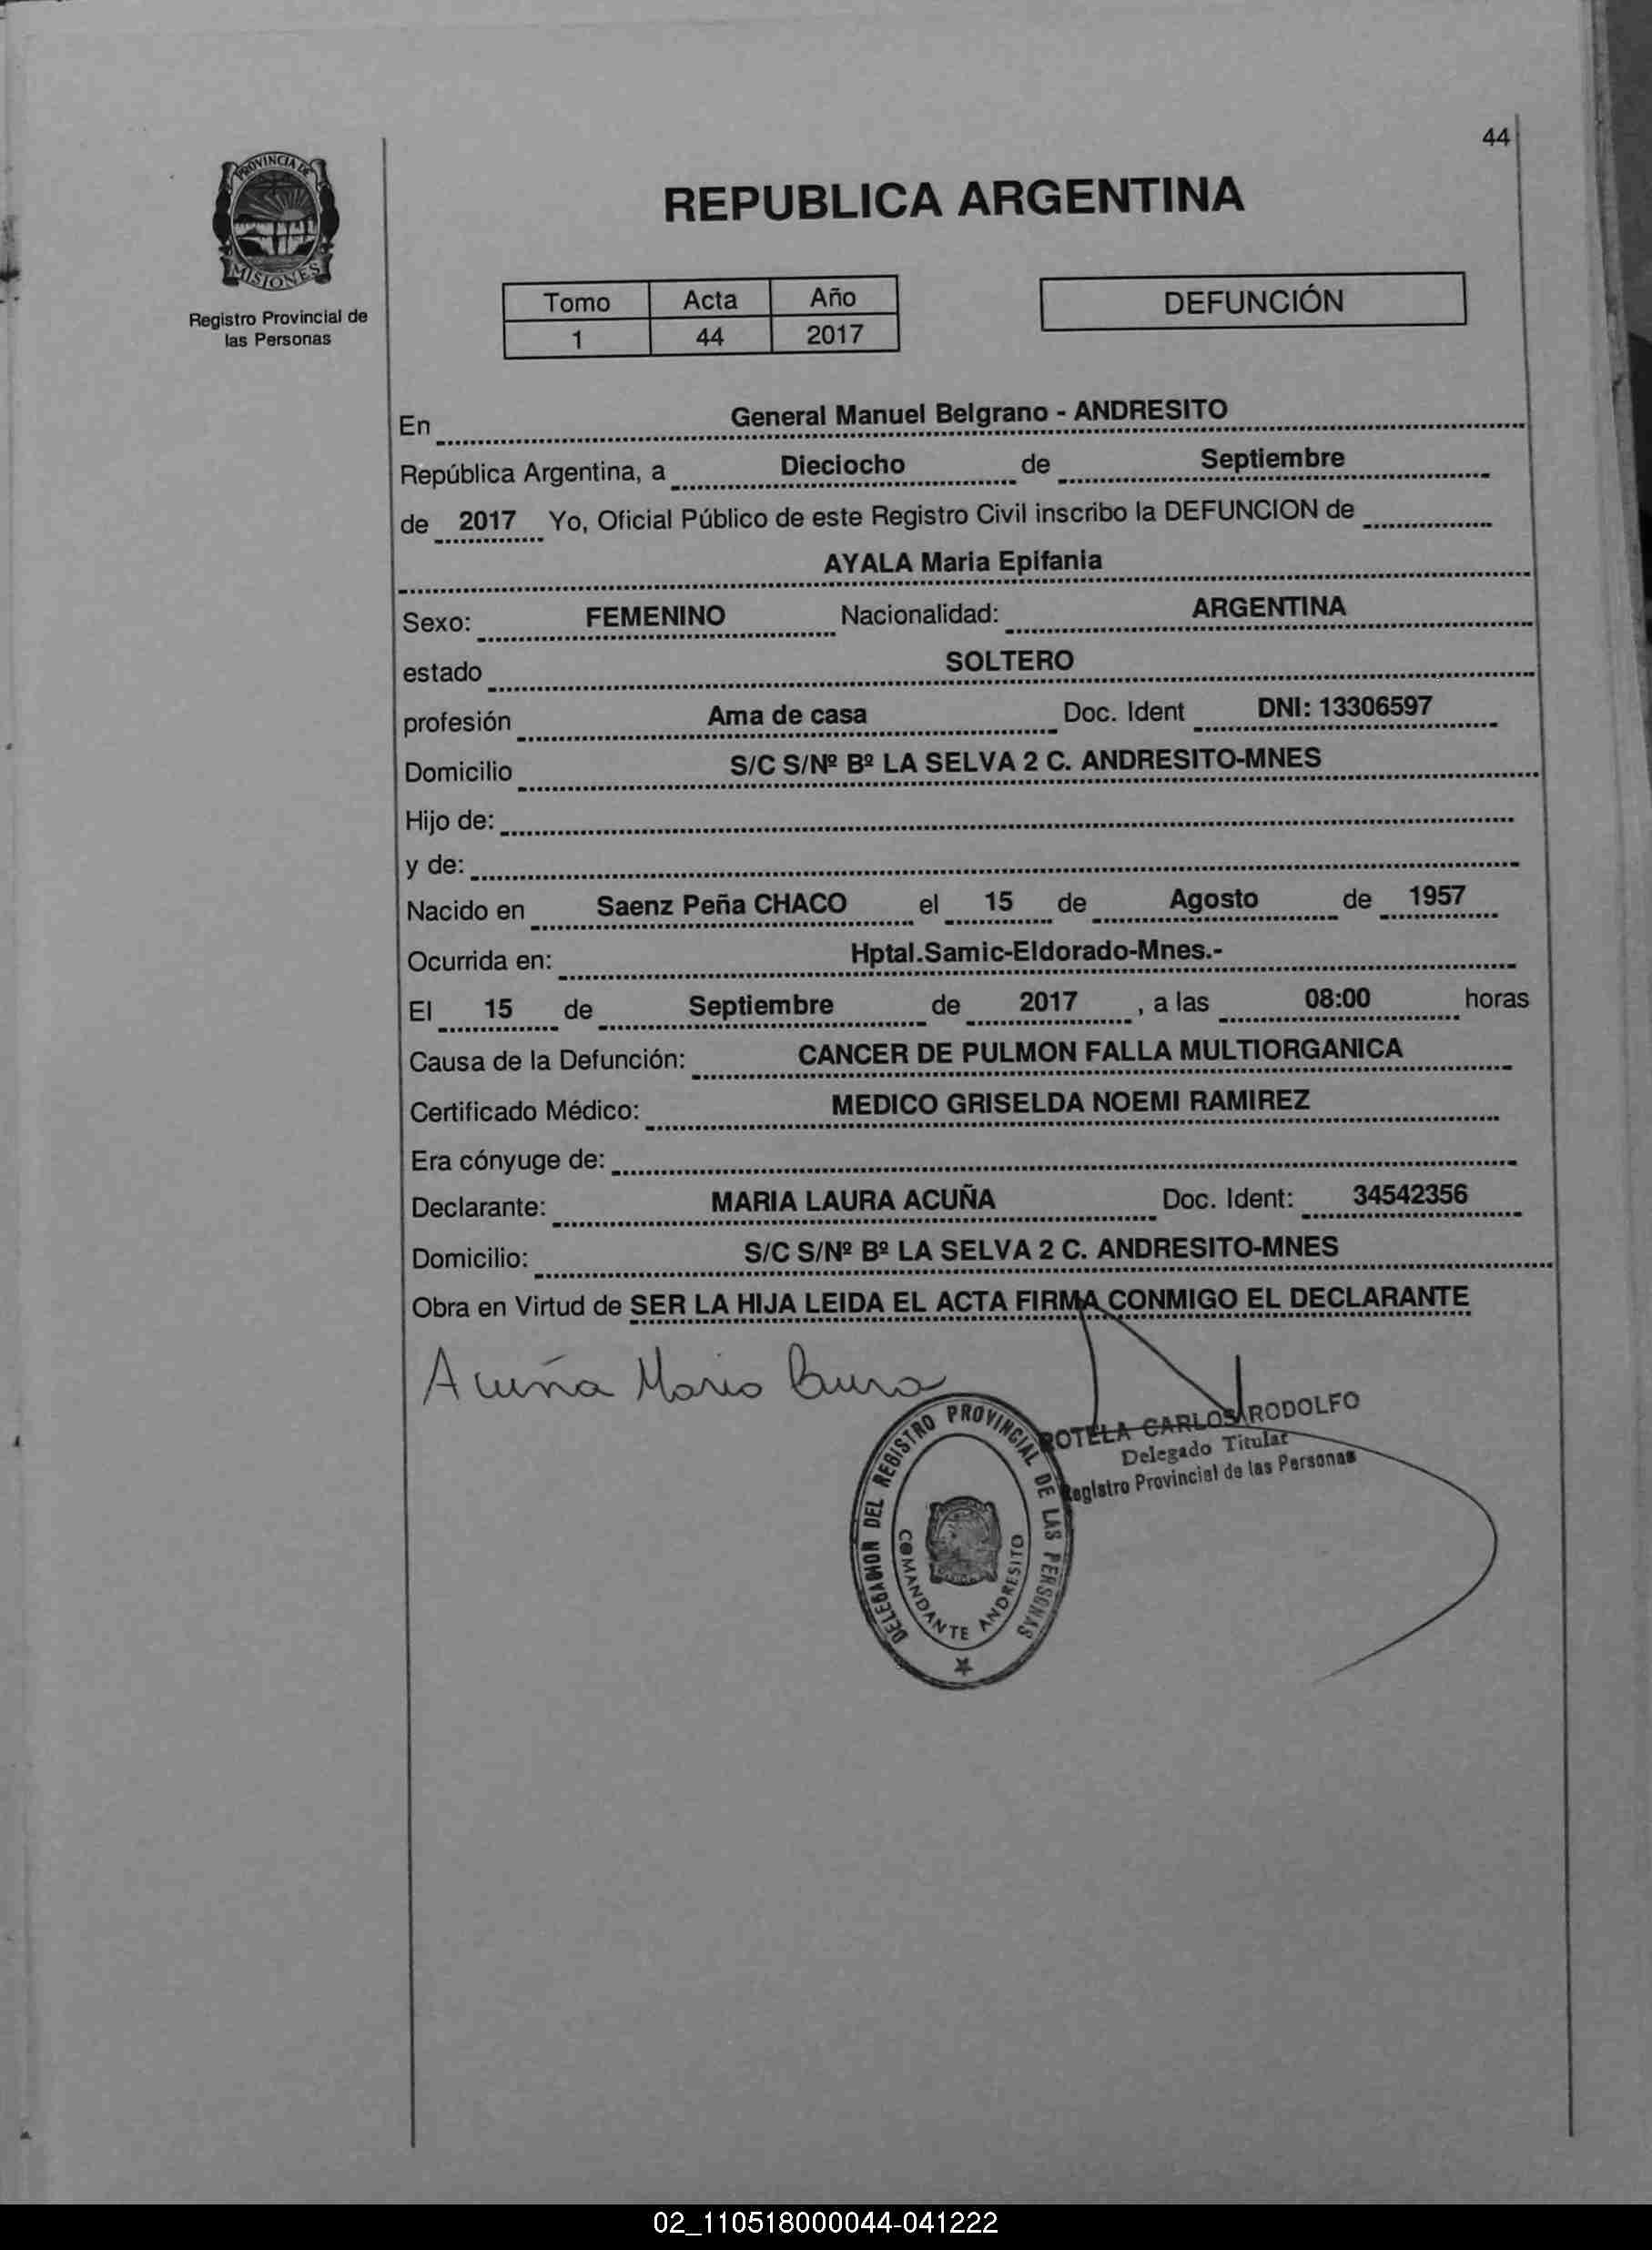 44
PROVINCIA DE
MISIONES
Registro Provincial de
las Personas
REPUBLICA ARGENTINA
Tomo Acta Año
1 44 2017
DEFUNCIÓN
En General Manuel Belgrano - ANDRESITO
República Argentina, a Dieciocho de Septiembre
de 2017 Yo, Oficial Público de este Registro Civil inscribo la DEFUNCION de
AYALA Maria Epifania
Sexo: FEMENINO Nacionalidad: ARGENTINA
estado SOLTERO
profesión Ama de casa Doc. Ident DNI: 13306597
Domicilio S/C S/Nº Bº LA SELVA 2 C. ANDRESITO-MNES
Hijo de:
y de:
Nacido en Saenz Peña CHACO el 15 de Agosto de 1957
Ocurrida en: Hptal.Samic-Eldorado-Mnes.-
El 15 de Septiembre de 2017 , a las 08:00 horas
Causa de la Defunción: CANCER DE PULMON FALLA MULTIORGANICA
Certificado Médico: MEDICO GRISELDA NOEMI RAMIREZ
Era cónyuge de:
Declarante: MARIA LAURA ACUÑA Doc. Ident: 34542356
Domicilio: S/C S/Nº Bº LA SELVA 2 C. ANDRESITO-MNES
Obra en Virtud de SER LA HIJA LEIDA EL ACTA FIRMA CONMIGO EL DECLARANTE
Acuña Maria Laura
ROTELA CARLOS RODOLFO
Delegado Titular
Registro Provincial de las Personas
DELEGACION DEL REGISTRO PROVINCIAL DE LAS PERSONAS
COMANDANTE ANDRESITO
02_110518000044-041222